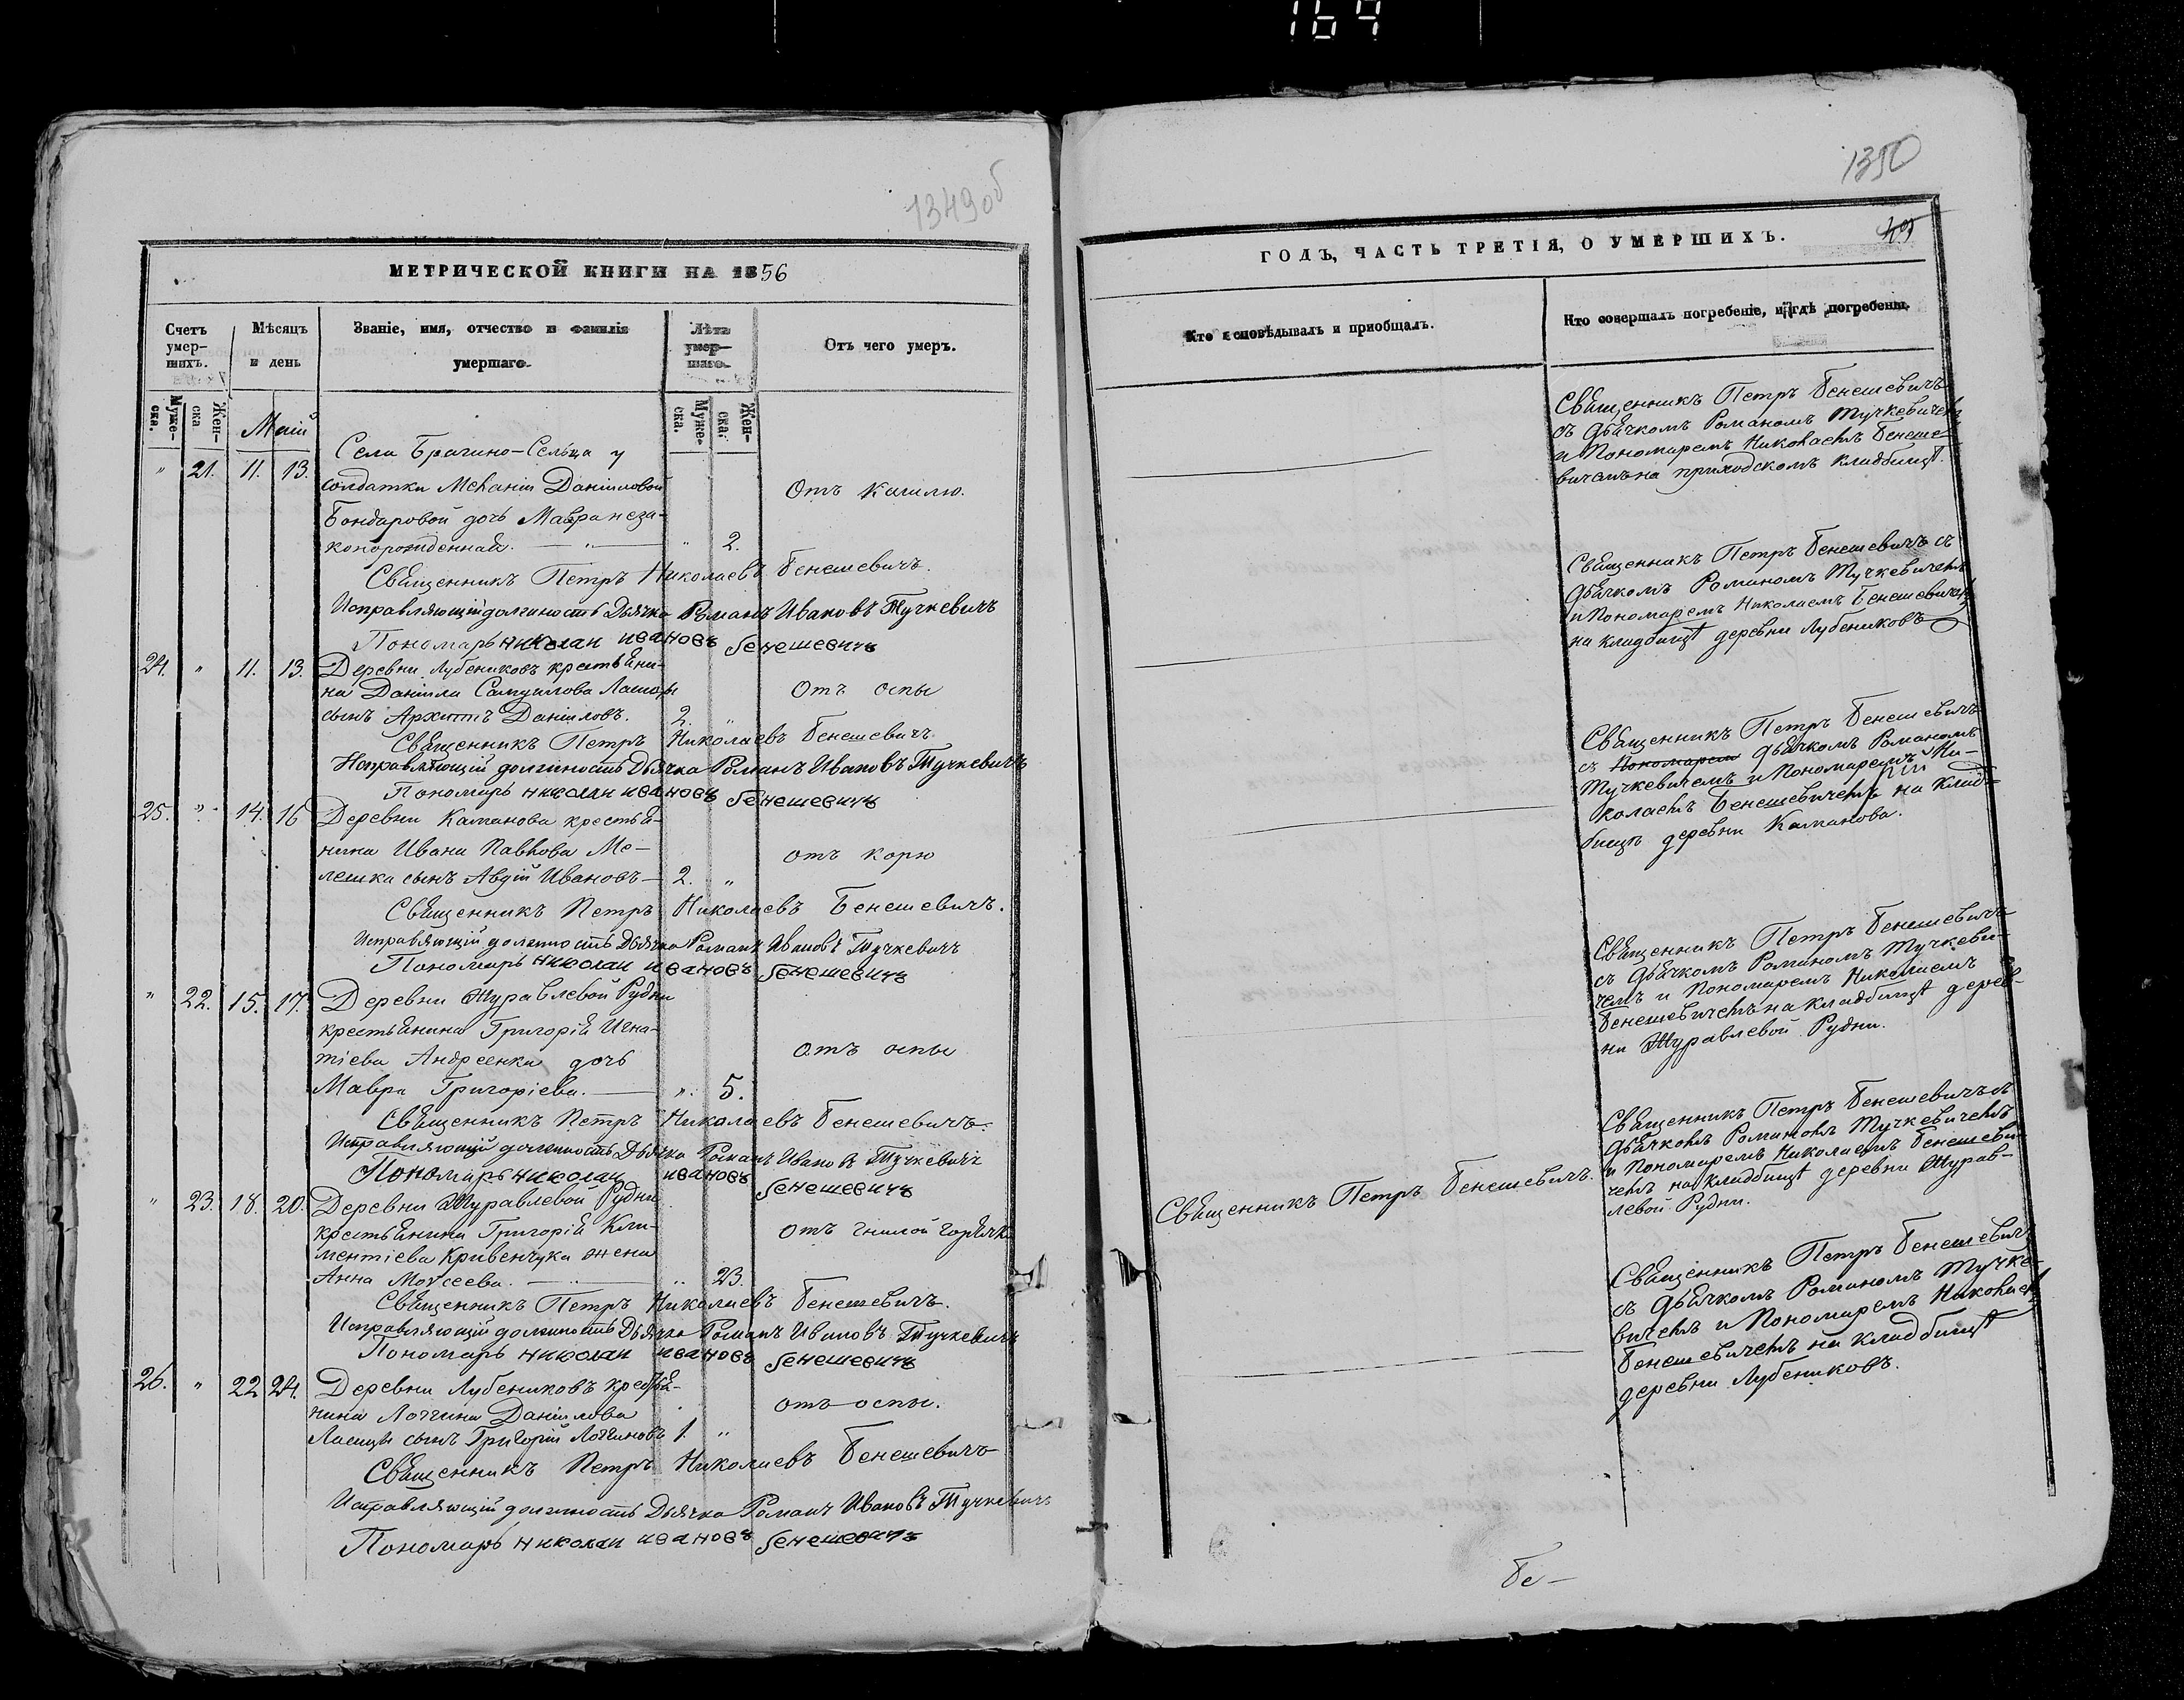 164
1349об
МЕТРИЧЕСКОЙ КНИГИ НА 1856
Счетъ умер-шихъ.
Мѣсяцъ и день
Званіе, имя, отчество и фамилія умершаго.
Лѣта умер-шаго.
Отъ чего умеръ.
Муже-ска.
Жен-ска
Май
Муже-ска.
Жен-ска.
Села Брагино-Сельца у
" 21. 11. 13. солдатки Меланіи Даніиловой Отъ кашлю.
Бондаровой дочь Мавра неза-
конорожденная. — " — " 2.
Священникъ Петръ Николаевъ Бенешевичъ.
Исправляющій должность Дьячка Романъ Ивановъ Тучкевичъ
Пономарь николаи ивановъ бенешевичъ
24. " 11. 13. Деревни Лубениковъ крестьяни-
на Даніила Самуилова Отъ оспы
сынъ Архипъ Даніиловъ. 2. "
Священникъ Петръ Николаевъ Бенешевичъ
Исправляющій должность Дьячка Романъ Ивановъ Тучкевичъ
Пономарь николаи ивановъ бенешевичъ
25. " 14. 16 Деревни Каманова крестья-
нина Ивана Павлова Ме- отъ корю
лешка сынъ Авдій Ивановъ — 2. "
Священникъ Петръ Николаевъ Бенешевичъ.
Исправляющій должность Дьячка Романъ Ивановъ Тучкевичъ
Пономарь николаи ивановъ бенешевичъ
" 22. 15. 17. Деревни Журавлевой Рудни
крестьянина Григорія Игна-
тіева Андреенка дочь отъ оспы
Мавра Григоріева. — ". 5.
Священникъ Петръ Николаевъ Бенешевичъ.
Исправляющій должность Дьячка Романъ Ивановъ Тучкевичъ
Пономарь николаи ивановъ бенешевичъ
" 23. 18. 20. Деревни Журавлевой Рудни
крестьянина Григорія Кли- отъ гнилой горячк
ментіева Кривенчука жена
Анна Моѵсеева. — " — " 23.
Священникъ Петръ Николаевъ Бенешевичъ.
Исправляющій должность Дьячка Романъ Ивановъ Тучкевичъ
Пономарь николаи ивановъ бенешевичъ
26. " 22 24. Деревни Лубениковъ крестья-
нина Логгина Даніилова отъ оспы.
сынъ Григорій Логгиновъ 1. "
Священникъ Петръ Николаевъ Бенешевичъ
Исправляющій должность Дьячка Романъ Ивановъ Тучкевичъ
Пономарь николаи ивановъ бенешевичъ
1350
ГОДЪ, ЧАСТЬ ТРЕТІЯ, О УМЕРШИХЪ.
Кто исповѣдывалъ и пріобщалъ.
Кто совершалъ погребеніе, и гдѣ погребены.
Священникъ Петръ Бенешевичъ
съ дьячкомъ Романомъ Тучкевичемъ
и Пономаремъ Николаемъ Бенеше-
вичемъ на приходскомъ кладбищѣ.
Священникъ Петръ Бенешевичъ съ
дьячкомъ Романомъ Тучкевичемъ
и Пономаремъ Николаемъ Бенешевичемъ
на кладбищѣ деревни Лубениковъ
Священникъ Петръ Бенешевичъ
съ Пономарем дьячкомъ Романомъ
Тучкевичемъ и Пономаремъ Ни-
колаемъ Бенешевичемъ на клад-
бищѣ деревни Каманова.
Священникъ Петръ Бенешевичъ
съ дьячкомъ Романомъ Тучкеви-
чемъ и Пономаремъ Николаемъ
Бенешевичемъ на кладбищѣ дерев-
ни Журавлевой Рудни.
Священникъ Петръ Бенешевичъ.
Священникъ Петръ Бенешевичъ съ
дьячкомъ Романомъ Тучкевичемъ
и Пономаремъ Николаемъ Бенешеви-
чемъ на кладбищѣ деревни Журав-
левой Рудни.
Священникъ Петръ Бенешевичъ
съ дьячкомъ Романомъ Тучке-
вичемъ и Пономаремъ Николаемъ
Бенешевичемъ на кладбищѣ
деревни Лубениковъ.
Бе-